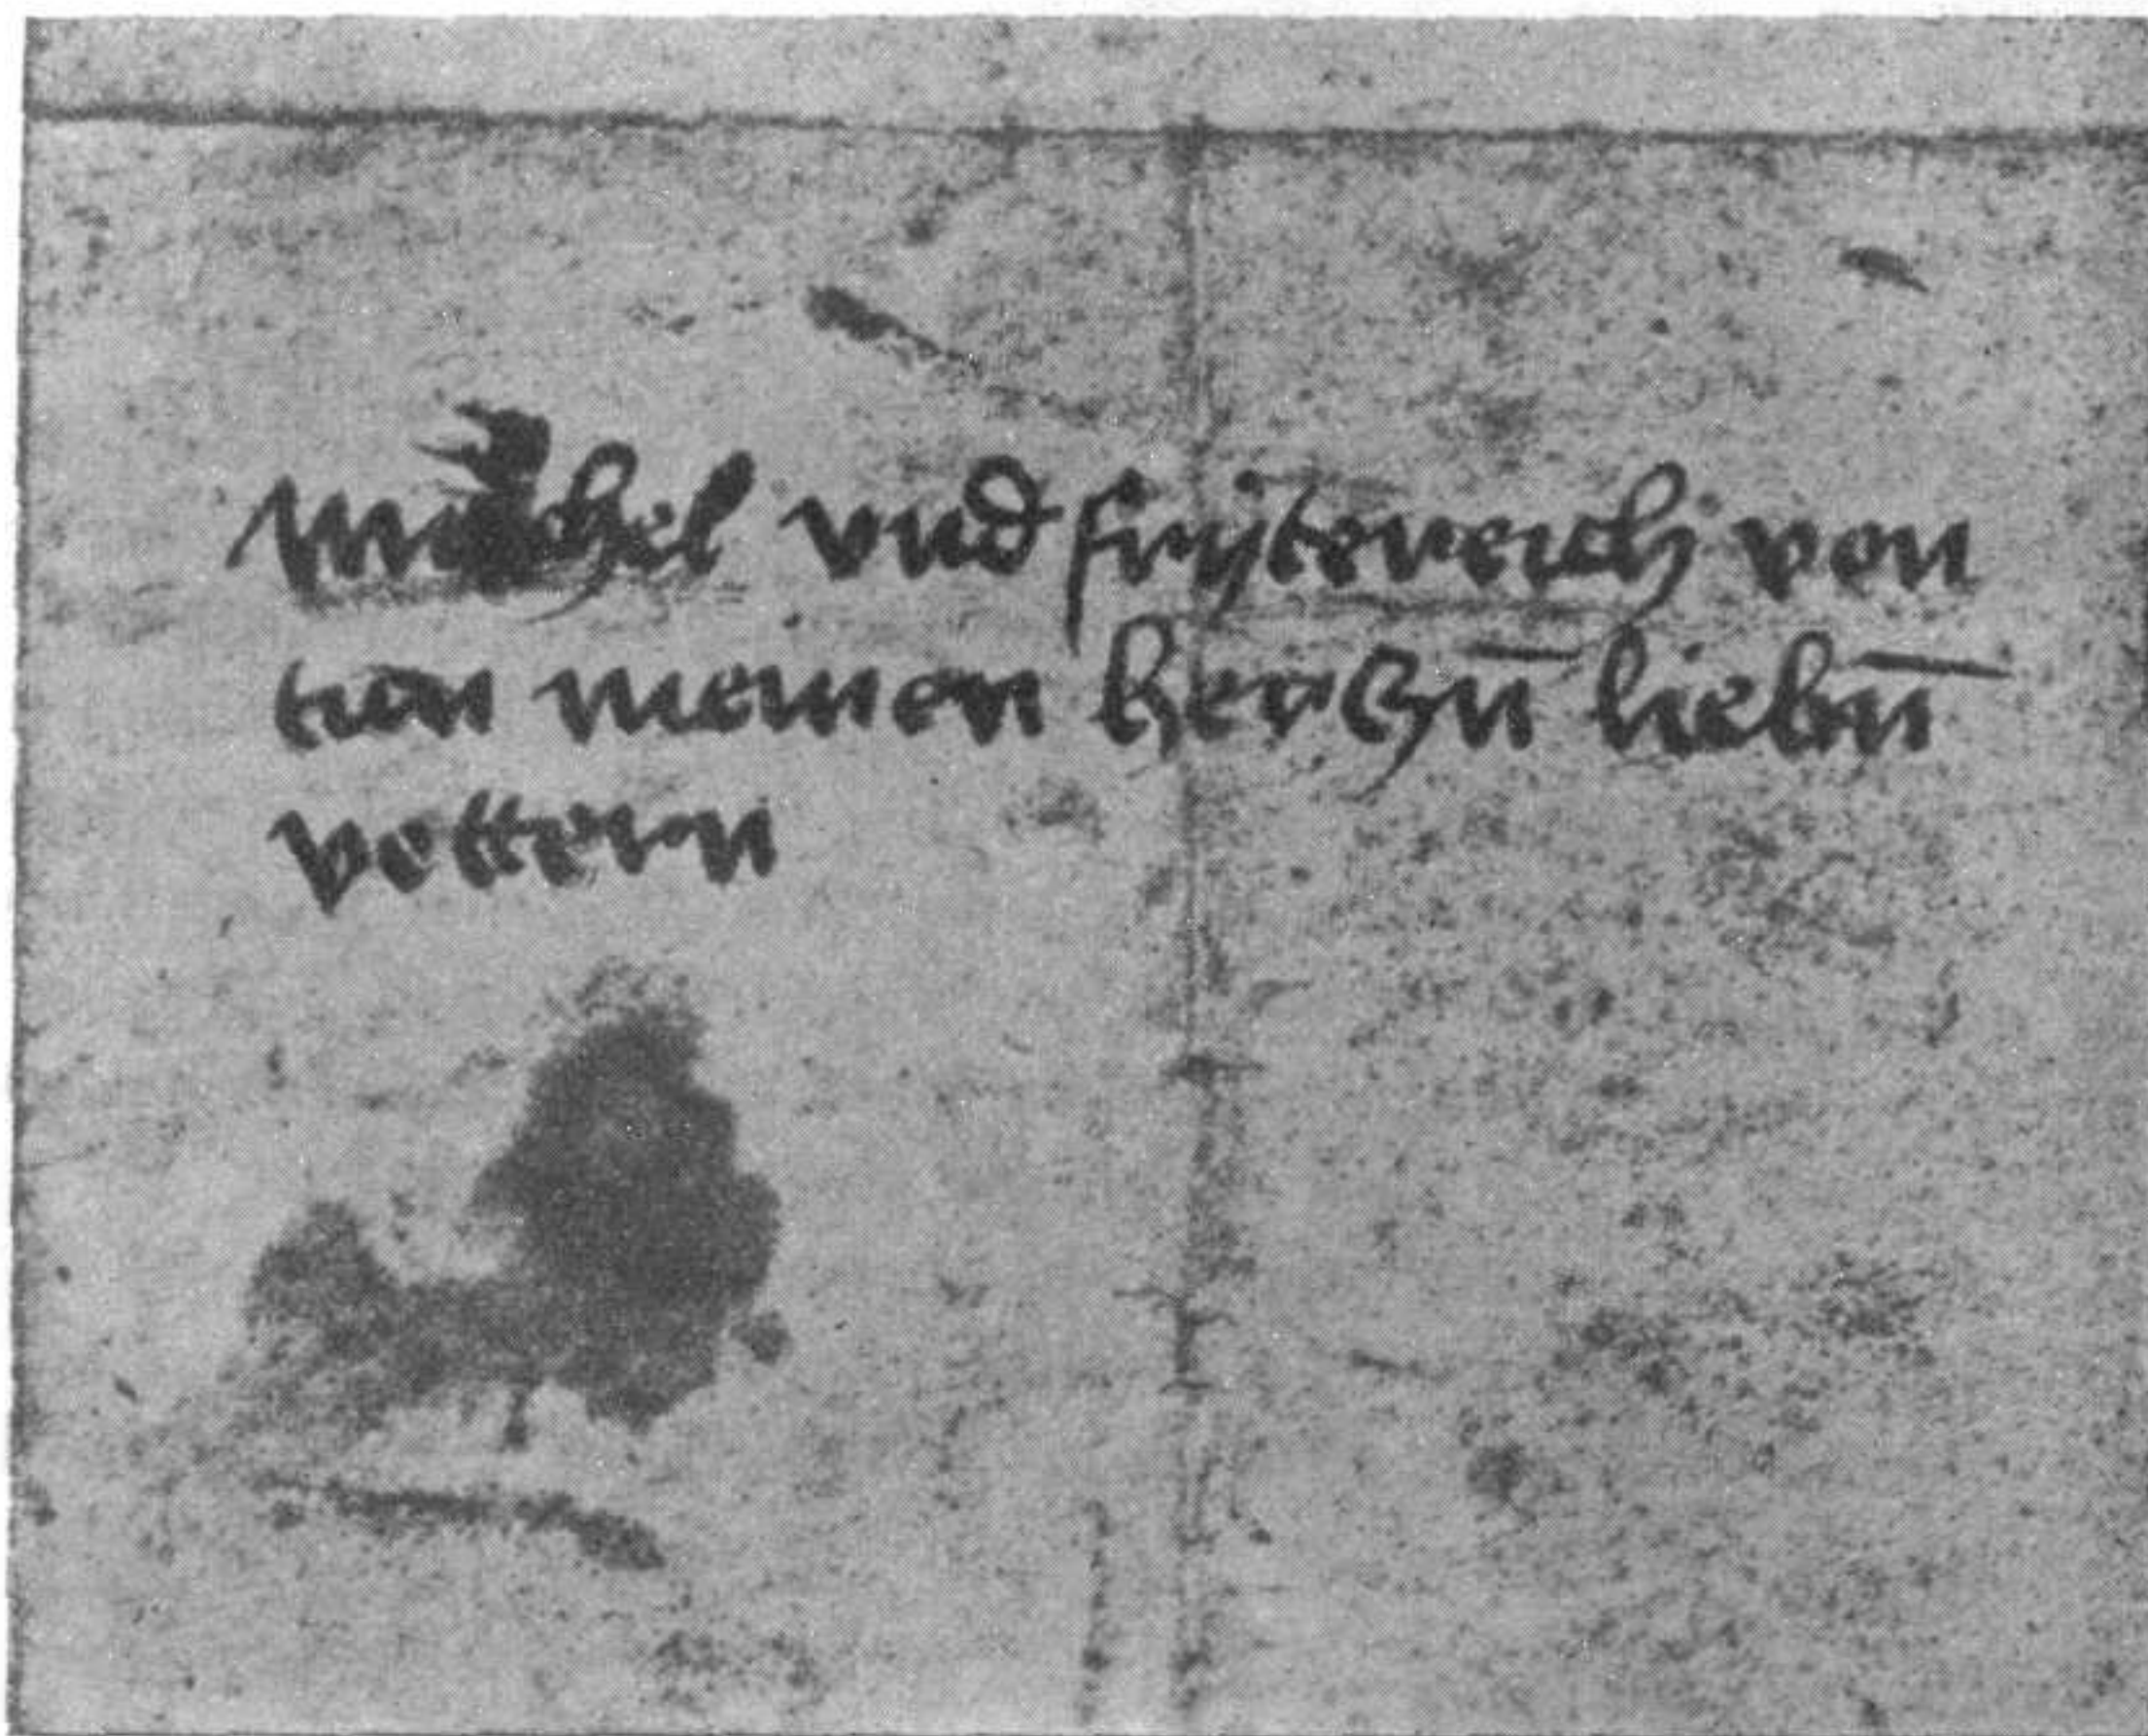 michel vnd frijtereich von
tien meinen hertzn̄ liebn̄
vettern